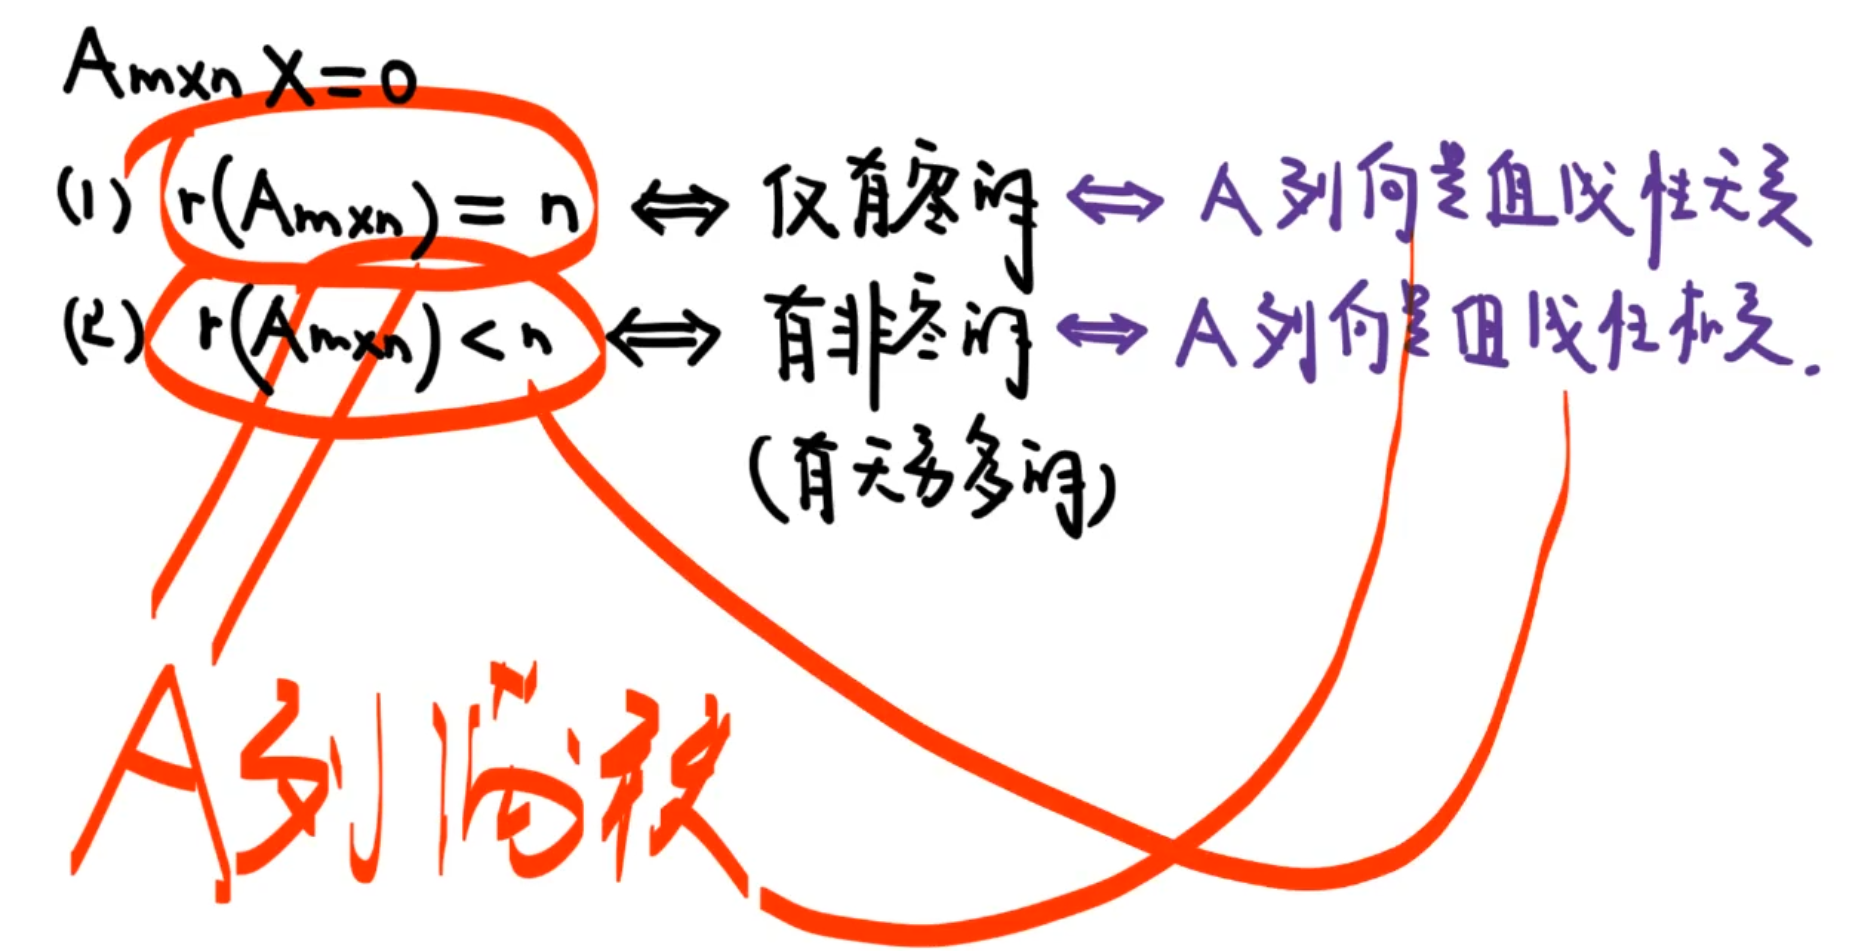 Aₘₓₙ X=0
(1) r(Aₘₓₙ)=n ⇔ 仅有零解 ⇔ A列向量组线性无关
(2) r(Aₘₓₙ)<n ⇔ 有非零解 ⇔ A列向量组线性相关.
(有无穷多解)
A列满秩